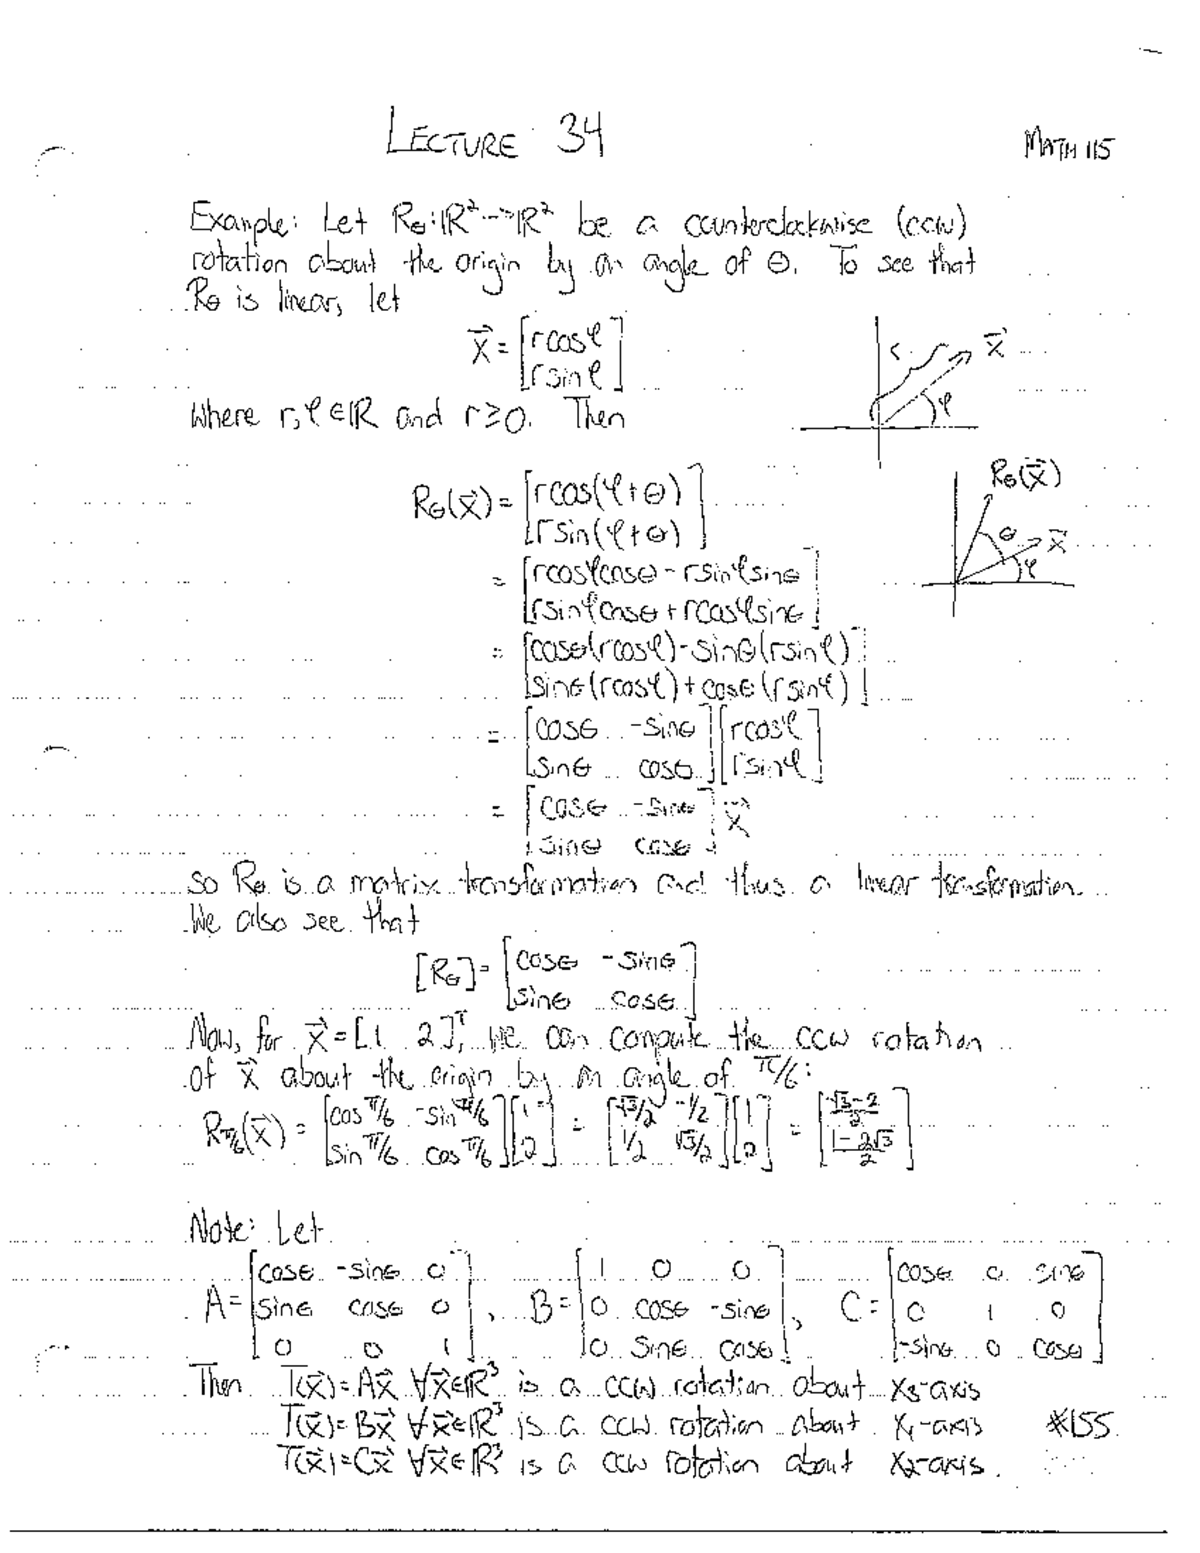 LECTURE 34
MATH 115
Example: Let Rθ: ℝ² --> ℝ² be a counterclockwise (ccw)
rotation about the origin by an angle of θ. To see that
Rθ is linear, let
x⃗ = [rcosφ
rsinφ]
r
x⃗
φ
where r, φ ∈ ℝ and r ≥ 0. Then
Rθ(x⃗) = [rcos(φ+θ)
rsin(φ+θ)]
Rθ(x⃗)
θ
x⃗
φ
= [rcosφcosθ - rsinφsinθ
rsinφcosθ + rcosφsinθ]
= [cosθ(rcosφ) - sinθ(rsinφ)
sinθ(rcosφ) + cosθ(rsinφ)]
= [cosθ -sinθ] [rcosφ
sinθ cosθ] rsinφ]
= [cosθ -sinθ] x⃗
sinθ cosθ]
so Rθ is a matrix transformation and thus a linear transformation.
We also see that
[Rθ] = [cosθ -sinθ
sinθ cosθ]
Now, for x⃗ = [1 2]ᵀ, we can compute the ccw rotation
of x⃗ about the origin by an angle of π/6:
Rπ/6(x⃗) = [cos π/6 -sin π/6] [1 = [√3/2 -1/2] [1] = [(√3-2)/2
sin π/6 cos π/6] 2] 1/2 √3/2] [2] (1-2√3)/2]
Note: Let
A = [cosθ -sinθ 0], B = [1 0 0], C = [cosθ 0 sinθ]
[sinθ cosθ 0] [0 cosθ -sinθ] [0 1 0]
[0 0 1] [0 sinθ cosθ] [-sinθ 0 cosθ]
Then T(x⃗) = Ax⃗ ∀x⃗∈ℝ³ is a ccw rotation about x₃-axis
T(x⃗) = Bx⃗ ∀x⃗∈ℝ³ is a ccw rotation about x₁-axis #155
T(x⃗) = Cx⃗ ∀x⃗∈ℝ³ is a ccw rotation about x₂-axis.